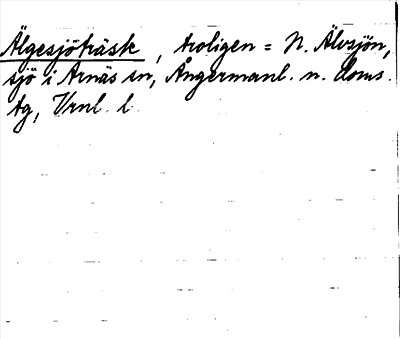 Älgesjöträsk, troligen = N. Älvsjön,
sjö i Arnäs sn, Ångermanl. n. doms.
tg, Vrnl. l.